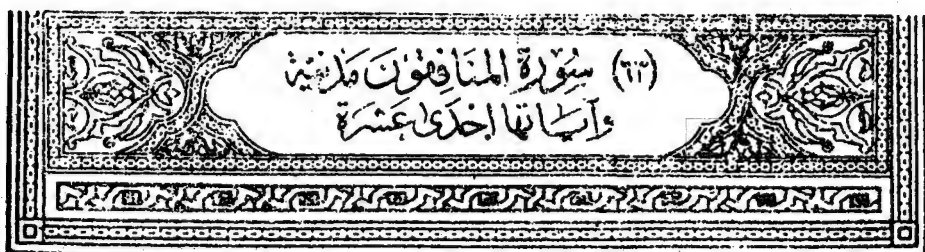 (٦٣) سُورَةِ المنَافِقونَ مَدَنِيَّة
وَآيَاتهَا إحْدَى عَشرَة